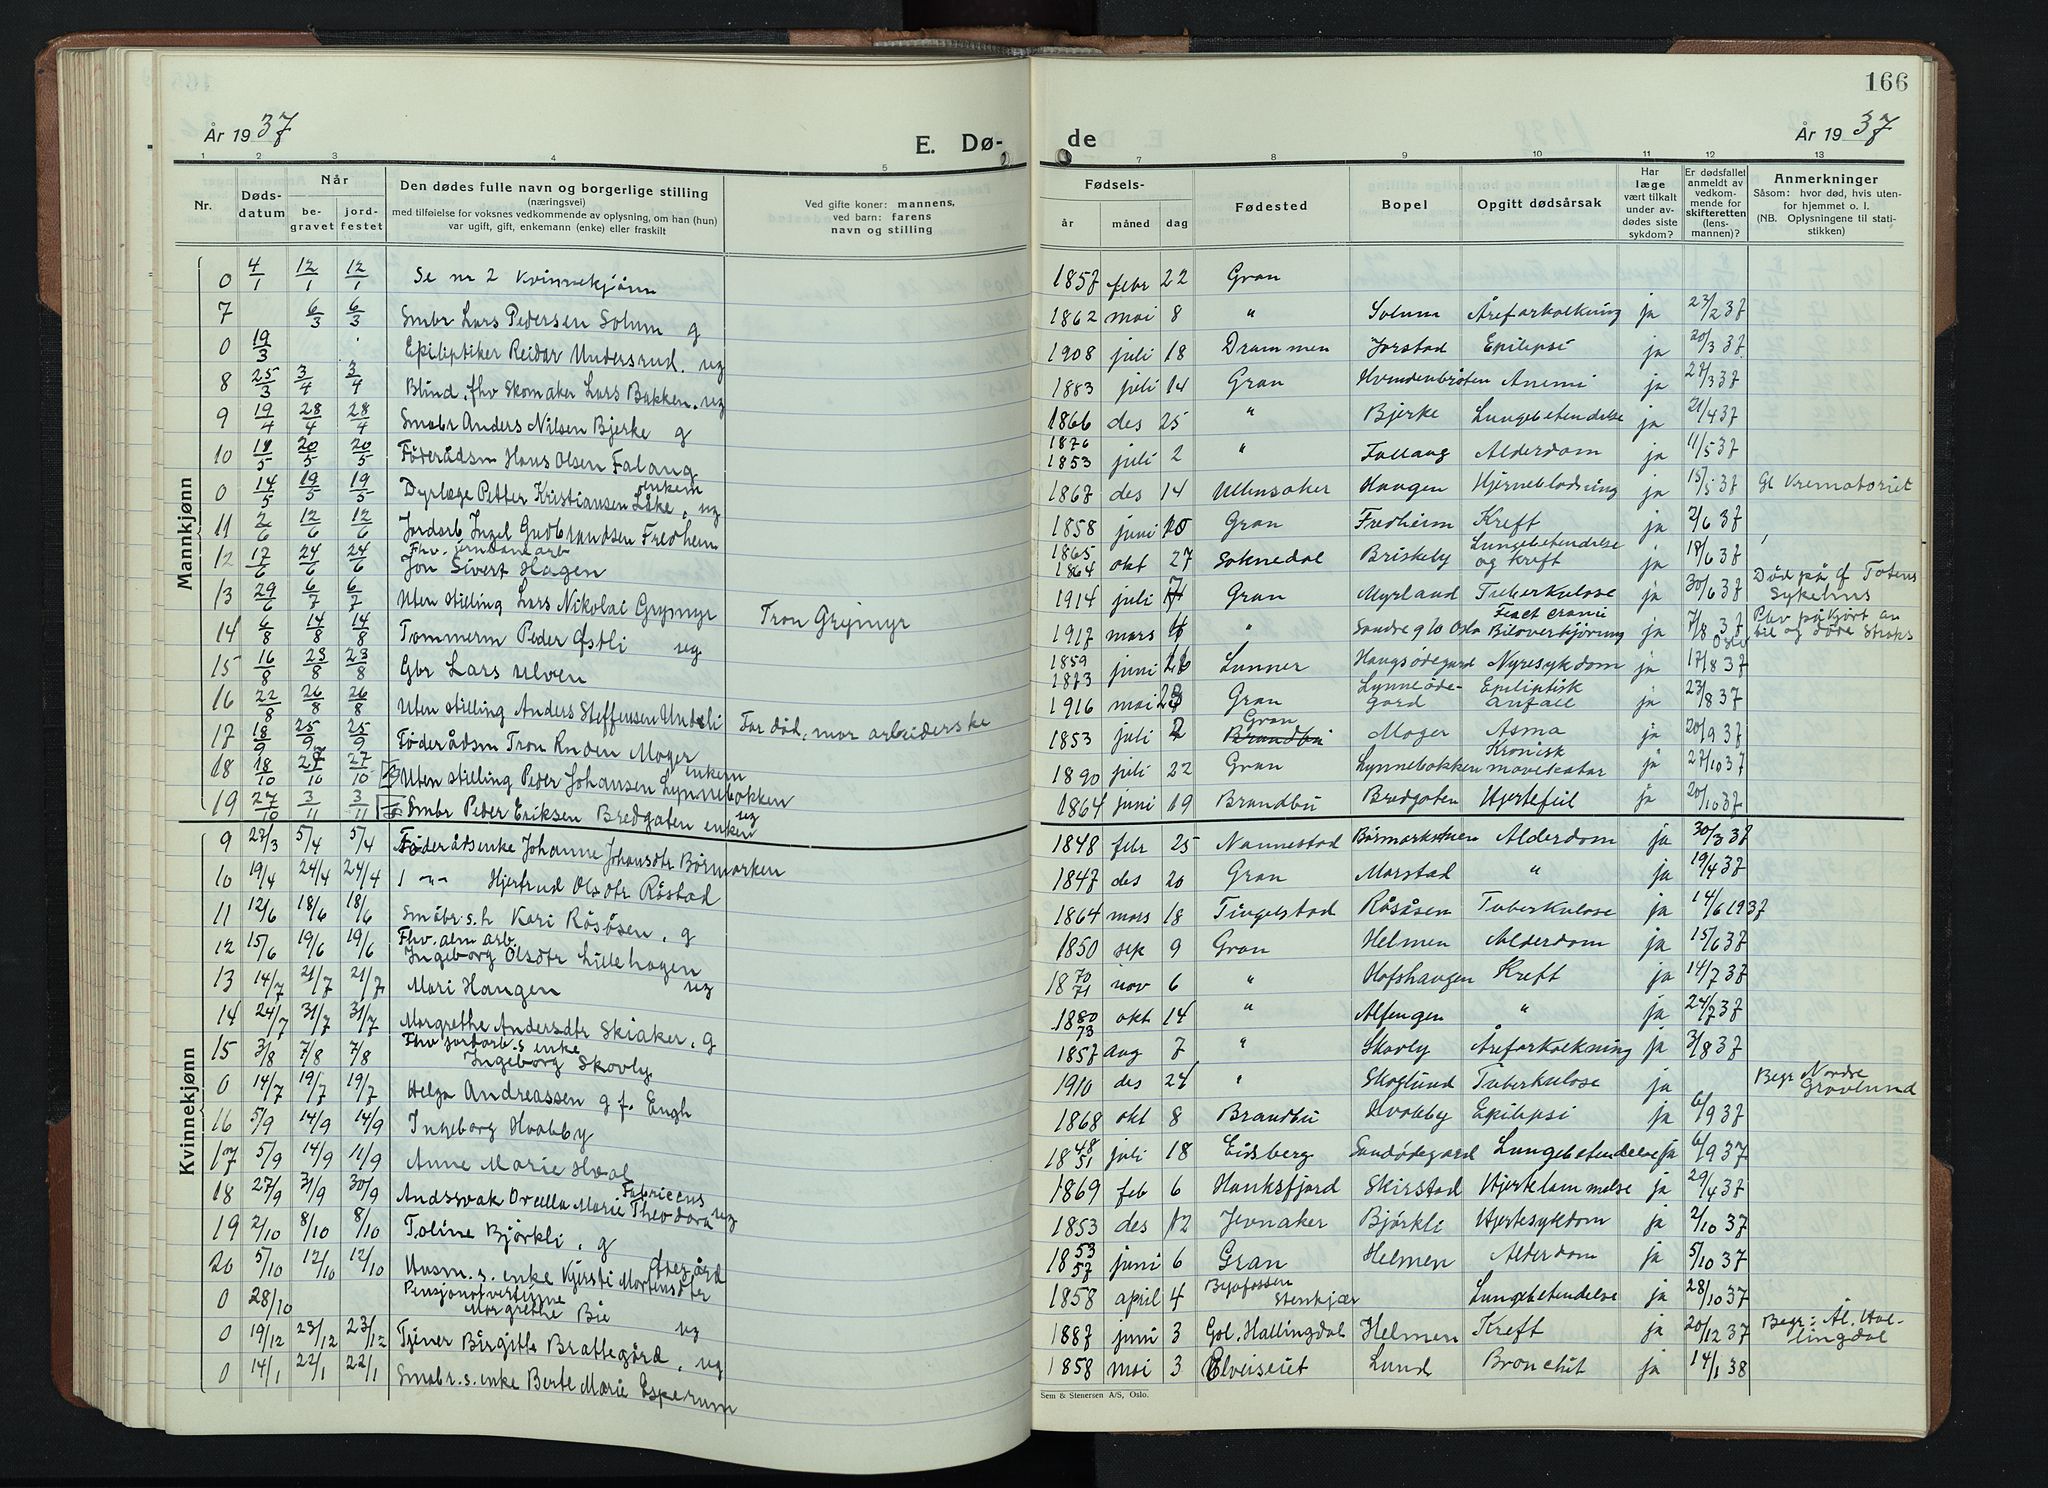 166
År 1937
E. Dø-
de
År 1937
1 2 3 4 5 7 8 9 10 11 12 13
Nr.
Døds-
datum
Når
be-
gravet
jord-
festet
Den dødes fulle navn og borgerlige stilling
(næringsvei)
med tilføielse for voksnes vedkommende av oplysning, om han (hun)
var ugift, gift, enkemann (enke) eller fraskilt
Ved gifte koner: mannens,
ved barn: farens
navn og stilling
Fødsels-
år måned dag
Fødested
Bopel
Opgitt dødsårsak
Har
læge
vært tilkalt
under av-
dødes siste
sykdom?
Er dødsfallet
anmeldt av
vedkom-
mende for
skifteretten
(lens-
mannen)?
Anmerkninger
Såsom: hvor død, hvis uten-
for hjemmet o. l.
(NB. Oplysningene til stati-
stikken)
Mannkjønn
0 4/1 12/1 12/1 Se nr 2 Kvinnekjønn 1857 febr 22 Gran
7 6/3 6/3 Smbr Lars Pedersen Solum g 1862 mai 8 " Solum Åreforkalkning ja 23/2 37
0 19/3 Epileptiker Reidar Undersrud. ug 1908 juli 18 Drammen Jorstad Epilepsi ja 20/3 37
8 25/3 3/4 3/4 Blind. fhv Skomaker Lars Bakken. ug 1883 juli 14 Gran Anemi ja 27/3 37
9 19/4 28/4 28/4 Smabr Anders Nilsen Bjerke g 1866 des 25 " Bjerke Lungebetendelse ja 21/4 37
10 20/5 20/5 Føderådsm Hans Olsen Falang enkem 1876 1853 juli 2 " Fallang Alderdom ja 11/5 37
0 14/5 19/5 19/5 Dyrlæge Petter Kristiansen Låke, ug 1867 des 14 Ullensaker Haugen Hjerneblødning ja 15/5 37 Gl Krematoriet
11 2/6 12/6 12/6 Jordarb Ingel Gudbrandsen Fredheim 1858 juni Gran Fredheim Kreft ja 2/6 37
12 17/6 24/6 24/6 Fhv. jernbanearb Jon Sivert Hagen 1865 1864 okt 27 Soknedal Briskeby Lungebetendelse og kreft ja 18/6 37
13 29/6 6/7 6/7 Uten stilling Lars Nikolai Grymyr Tron Grymyr 1914 juli 7 Gran Myrland Tuberkulose ja 30/6 37 Død på Totens Sykehus
14 6/8 14/8 14/8 Tømmerm Peder Østli ug 1917 mars " Biloverkjøring ja 7/8 37 Oslo Blev påkjørt av bil og døde straks
15 16/8 23/8 23/8 Gbr Lars Ulven 1859 1873 juni 26 Lunner Haugsødegard Nyresykdom ja 17/8 37
16 22/8 26/8 26/8 Uten stilling Anders Steffensen Undeli Far død, mor arbeiderske 1916 mai Gran Lynneøde-gard Epileptisk anfall ja 23/8 37
17 18/9 25/9 25/9 Føderådsm Tron Moger enkem 1853 juli 2 Gran Brandbu Moger Asma ja 20/9 37
18 18/10 27/10 27/10 Uten stilling Peder Johansen Lynnebakken ug 1890 juli 22 Gran Lynnebakken Kronisk mavekatar ja 27/10 37
19 27/10 3/11 3/11 Smbr Peder Eriksen Bredgaten enkem 1864 juni 19 Brandbu Bredgaten Hjertefeil ja 20/10 37
Kvinnekjønn
9 27/3 5/4 5/4 Føderådsenke Johanne Johansdtr Børmarken 1848 febr 25 Nannestad Alderdom ja 30/3 37
10 19/4 24/4 24/4 Hjertrud Olsdtr Råstad 1847 des 20 Gran Morstad " ja 19/4 37
11 12/6 18/6 18/6 Småbr.s.h Kari Råsåsen. g 1864 mars 18 Tingelstad Råsåsen Tuberkulose ja 14/6 1937
12 15/6 19/6 19/6 Fhv. alm arb. Ingeborg Olsdtr Lillehagen ug 1850 sep 9 Gran Helmen Alderdom ja 15/6 37
13 14/7 21/7 21/7 Mari Haugen 1870 71 nov 6 " Hofshaugen Kreft ja 14/7 37
14 24/7 31/7 31/7 Margrethe Andersdtr Skiaker. g 1880 73 okt 14 " Alfengen " ja 24/7 37
15 3/8 7/8 7/8 Fhv jordarb.s enke Ingeborg Skovly 1857 aug 7 " Skovly Åreforkalkning ja 3/8 37
0 14/7 19/7 19/7 Helga Andreassen g f. Engh 1910 des 24 " Skoglund Tuberkulose ja Begr Nordre Gravlund
16 5/9 14/9 14/9 Ingeborg Hvobby 1868 okt 8 Brandbu Hvobby Epilepsi ja 6/9 37
17 5/9 14/9 11/9 Anne Marie Hval 1848 51 juli 18 Eidsberg Sandødegard Lungebetendelse ja 6/9 37
18 27/9 31/9 30/9 Marie Theodora Fabriceus ug 1869 feb 6 Hanksfjord Skirstad Hjertelammelse ja 29/4 37
19 2/10 8/10 8/10 Toline Bjørkli. g 1853 des 12 Jevnaker Bjørkli Hjertesykdom ja 2/10 37
20 5/10 12/10 12/10 Husm.s. enke Kjersti Mortensdter Østegård 1853 57 juni 6 Gran Helmen Alderdom ja 5/10 37
0 28/10 Pensjonatvertinne Margrethe Bie ug 1858 april 4 Stenkjær Lungebetendelse ja 28/10 37
0 19/12 23/12 23/12 Tjener Birgitte Brattegård. ug 1887 juni 3 Gol. Hallingdal Helmen Kreft ja 20/12 37 Begr: Ål. Hal-lingdal
0 14/1 22/1 22/1 Smabr.s.enke Berte Marie Esperum 1858 mai 3 Lund Bronchit ja 14/1 38
Sem & Stenersen A/S, Oslo.